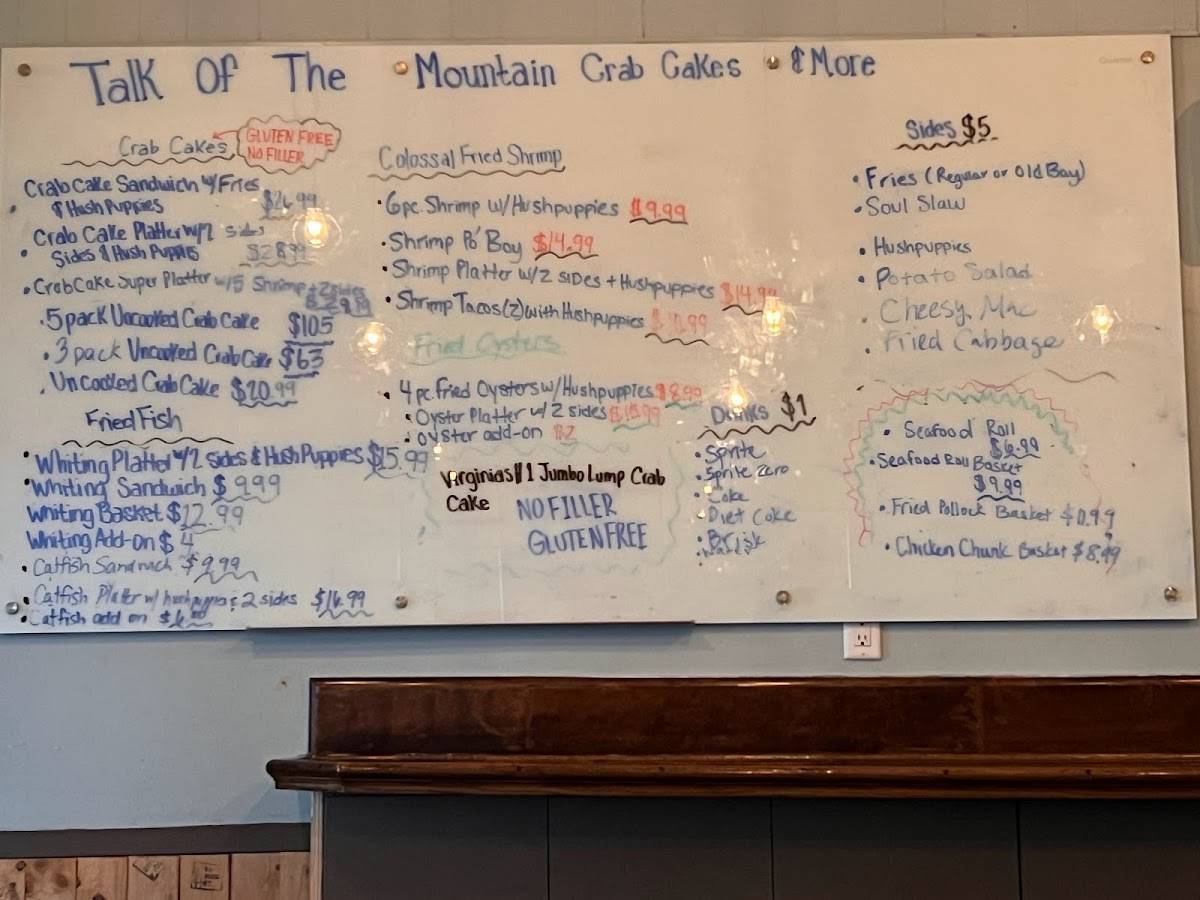 Talk Of The Mountain Crab Cakes & More
Crab Cakes
GLUTEN FREE
NO FILLER
Crab Cake Sandwich w/ Fries
& Hush Puppies $26.99
Crab Cake Platter w/2 sides
Sides & Hush Puppies $28.99
Crab Cake Super Platter w/5 Shrimp + 2 sides
5 pack Uncooked Crab Cake $105
3 pack Uncooked Crab Cake $63
Uncooked Crab Cake $20.99
Fried Fish
Whiting Platter w/2 Sides & Hush Puppies $15.99
Whiting Sandwich $9.99
Whiting Basket $12.99
Whiting Add-on $4
Catfish Sandwich $9.99
Catfish Platter w/ hushpuppies & 2 sides $16.99
Catfish add on
Colossal Fried Shrimp
6pc. Shrimp w/Hushpuppies $9.99
Shrimp Po' Boy $14.99
Shrimp Platter w/2 SIDES + Hushpuppies $14.99
Shrimp Tacos (2) with Hushpuppies
Fried Oysters
4 pc. Fried Oysters w/Hushpuppies $8.99
Oyster Platter w/ 2 sides
oyster add-on $2
Virginias #1 Jumbo Lump Crab
Cake
NO FILLER
GLUTEN FREE
Drinks $1
Sprite
Sprite Zero
Coke
Diet Coke
Brisk
Sides $5
Fries (Regular or Old Bay)
Soul Slaw
Hushpuppies
Potato Salad
Cheesy Mac
Fried Cabbage
Seafood Roll
$6.99
Seafood Roll Basket
$9.99
Fried Pollock Basket
Chicken Chunk Basket $8.99